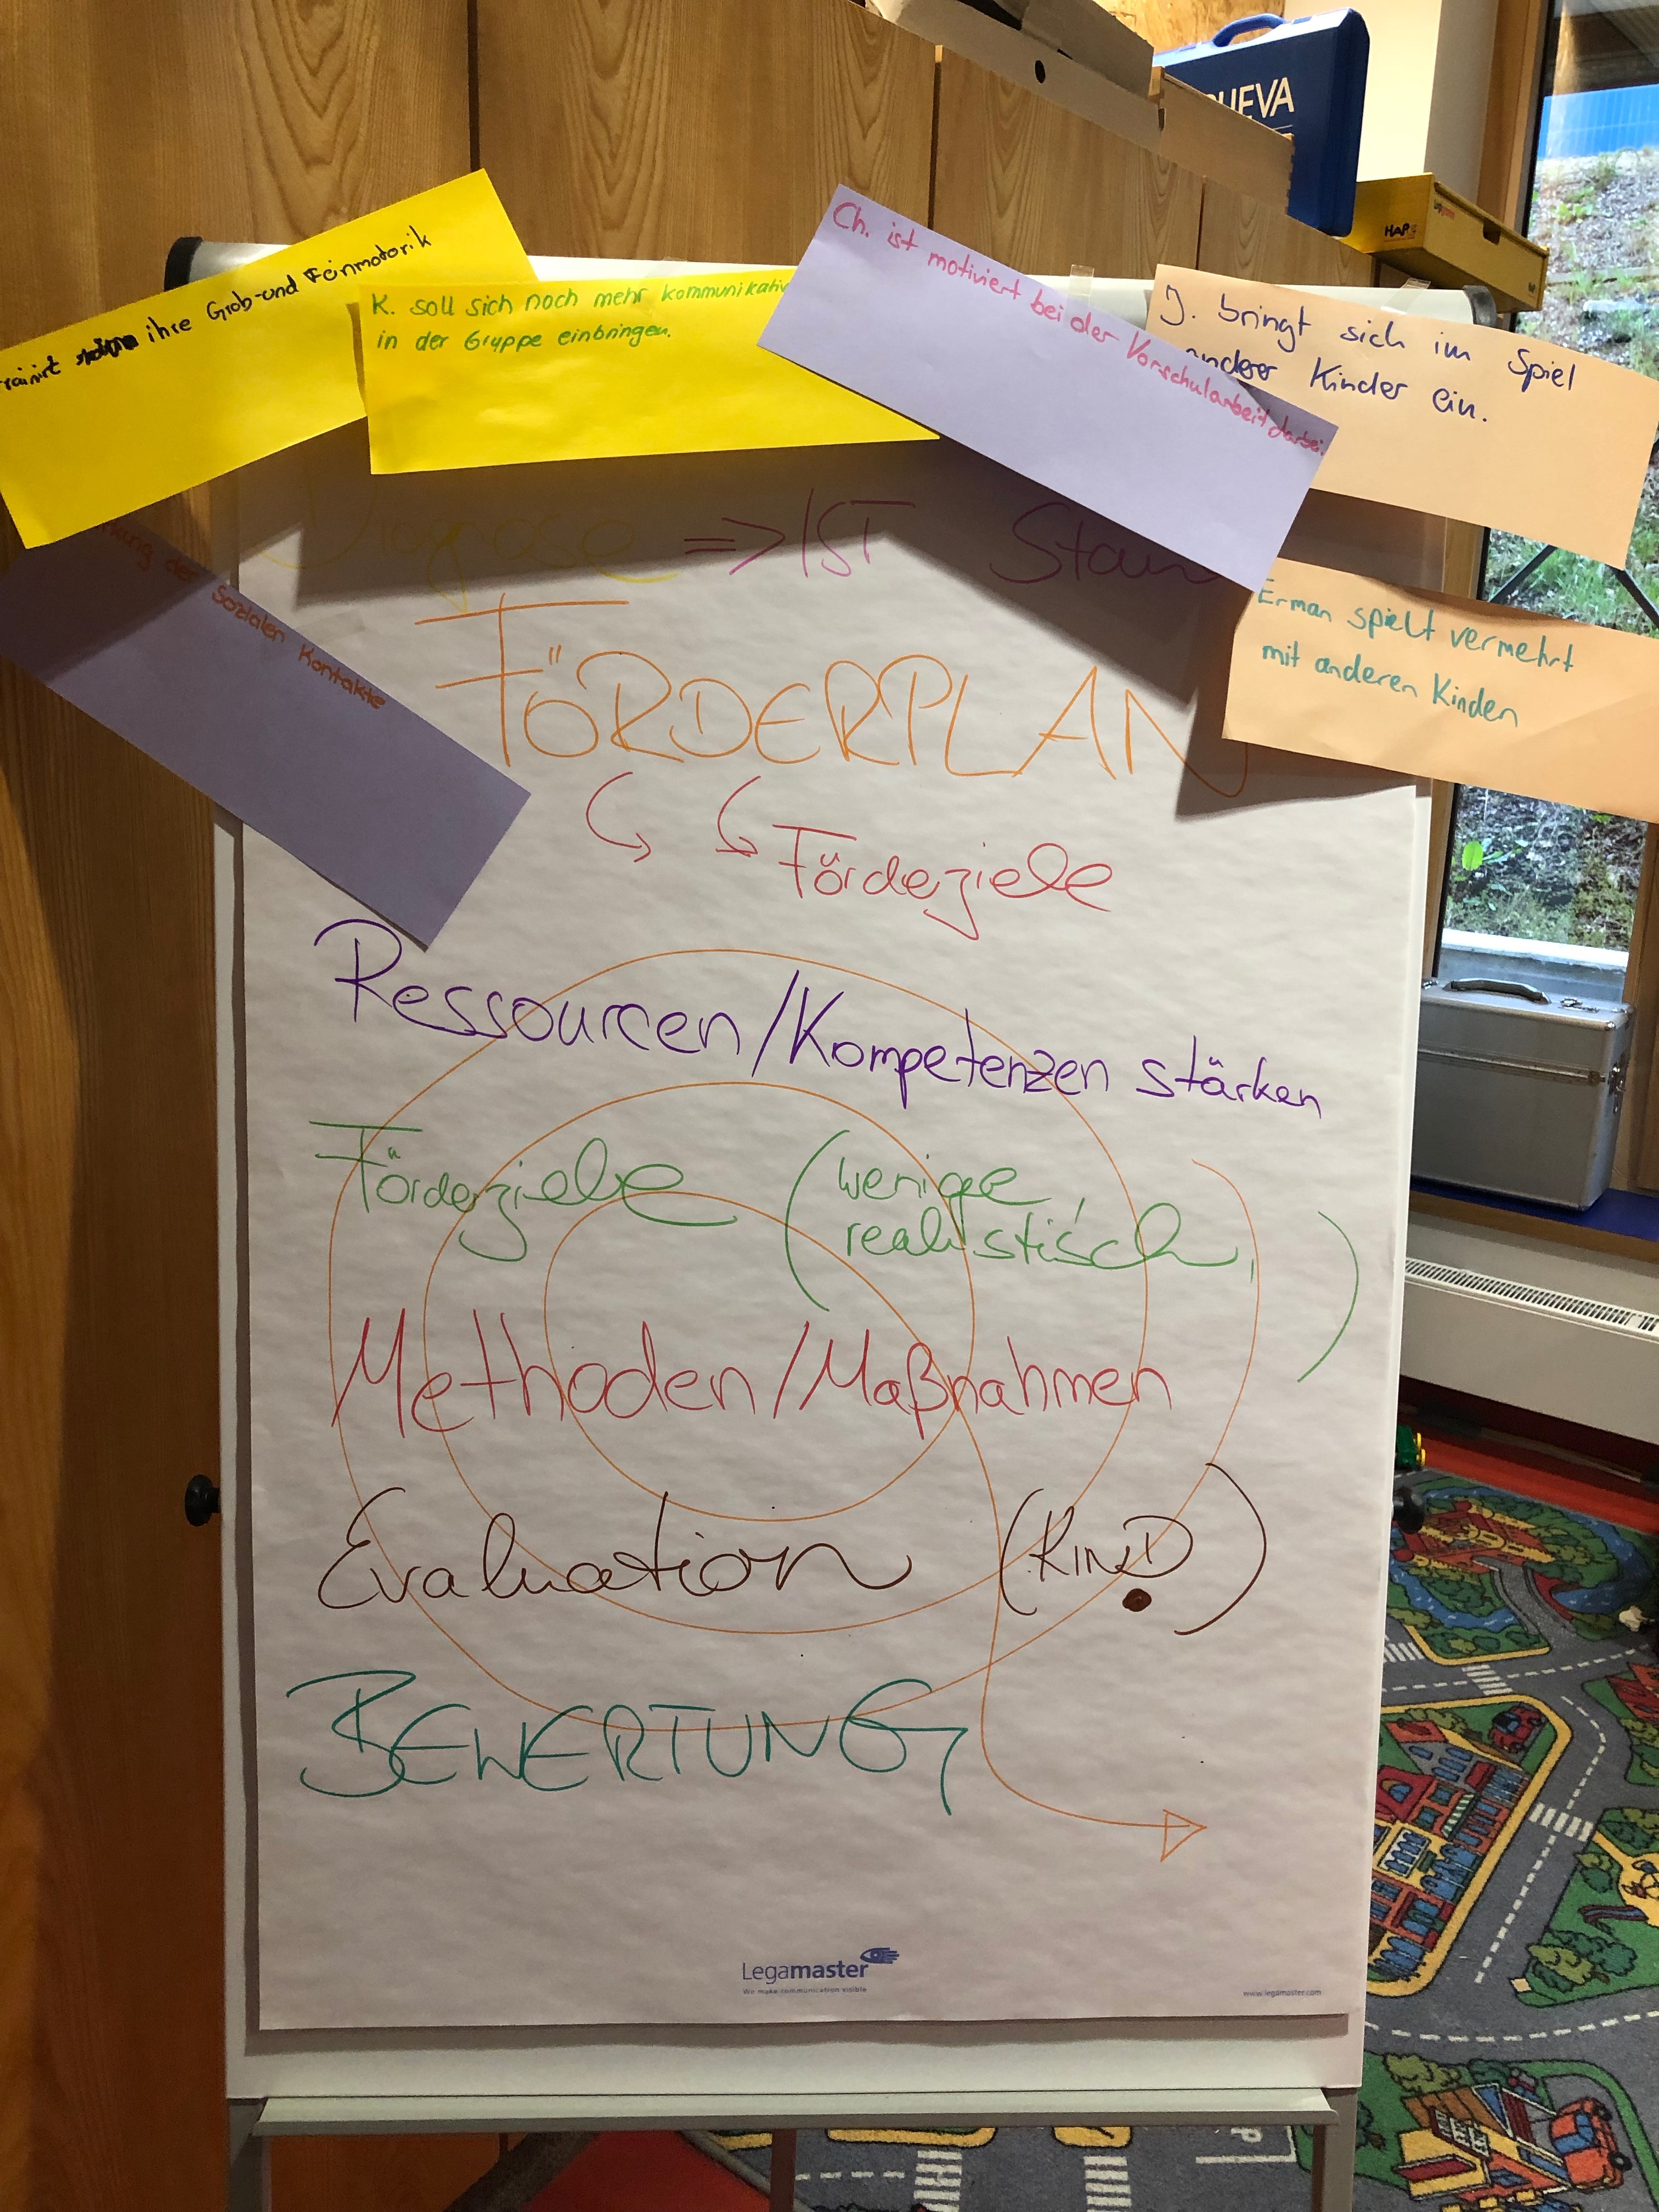 HAPE
ihre Grob-und Feinmotorik
K. soll sich noch mehr kommunikativ
in der Gruppe einbringen.
Ch. ist motiviert bei der Vorschularbeit dabei.
J. bringt sich im Spiel
anderer Kinder ein.
Erman spielt vermehrt
mit anderen Kindern
der Sozialen Kontakte
Diagnose => IST Stan
FÖRDERPLAN
Förderziele
Ressourcen/Kompetenzen stärken
Förderziele (wenige,
realistisch, )
Methoden/Maßnahmen
Evaluation (KIND)
BEWERTUNG
Legamaster
We make communication visible
www.legamaster.com